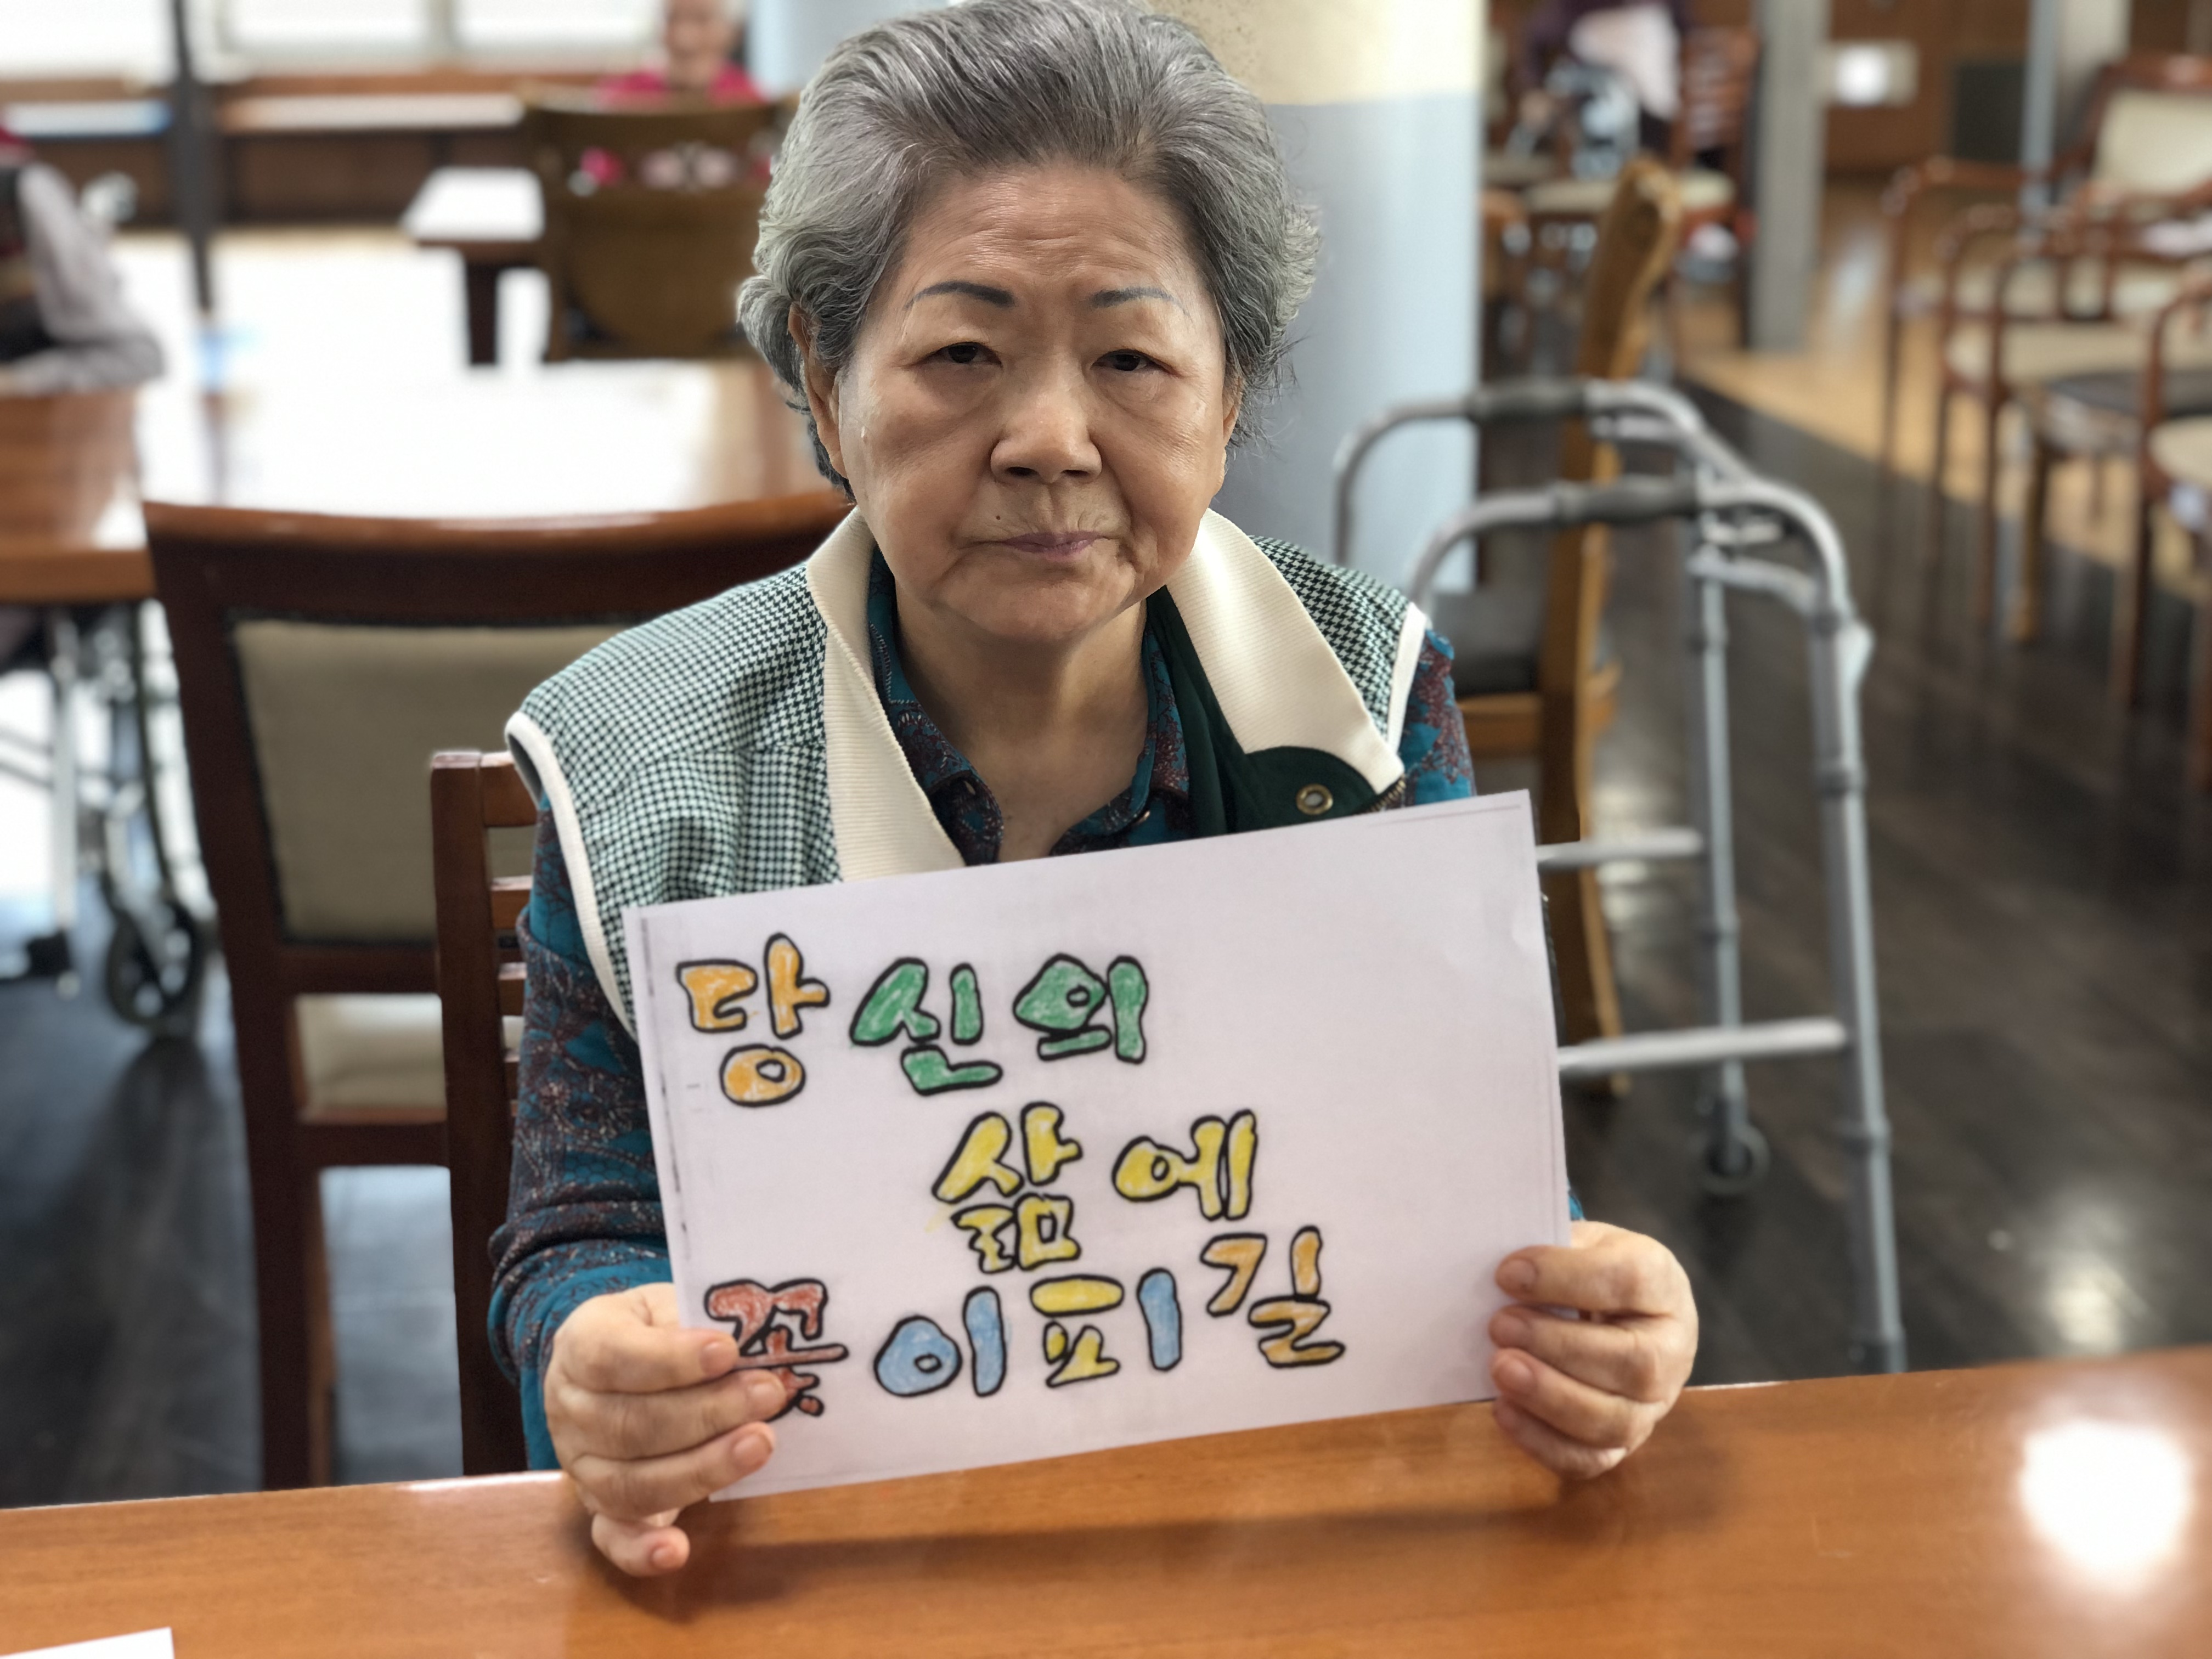 당신의
삶에
꽃이피길